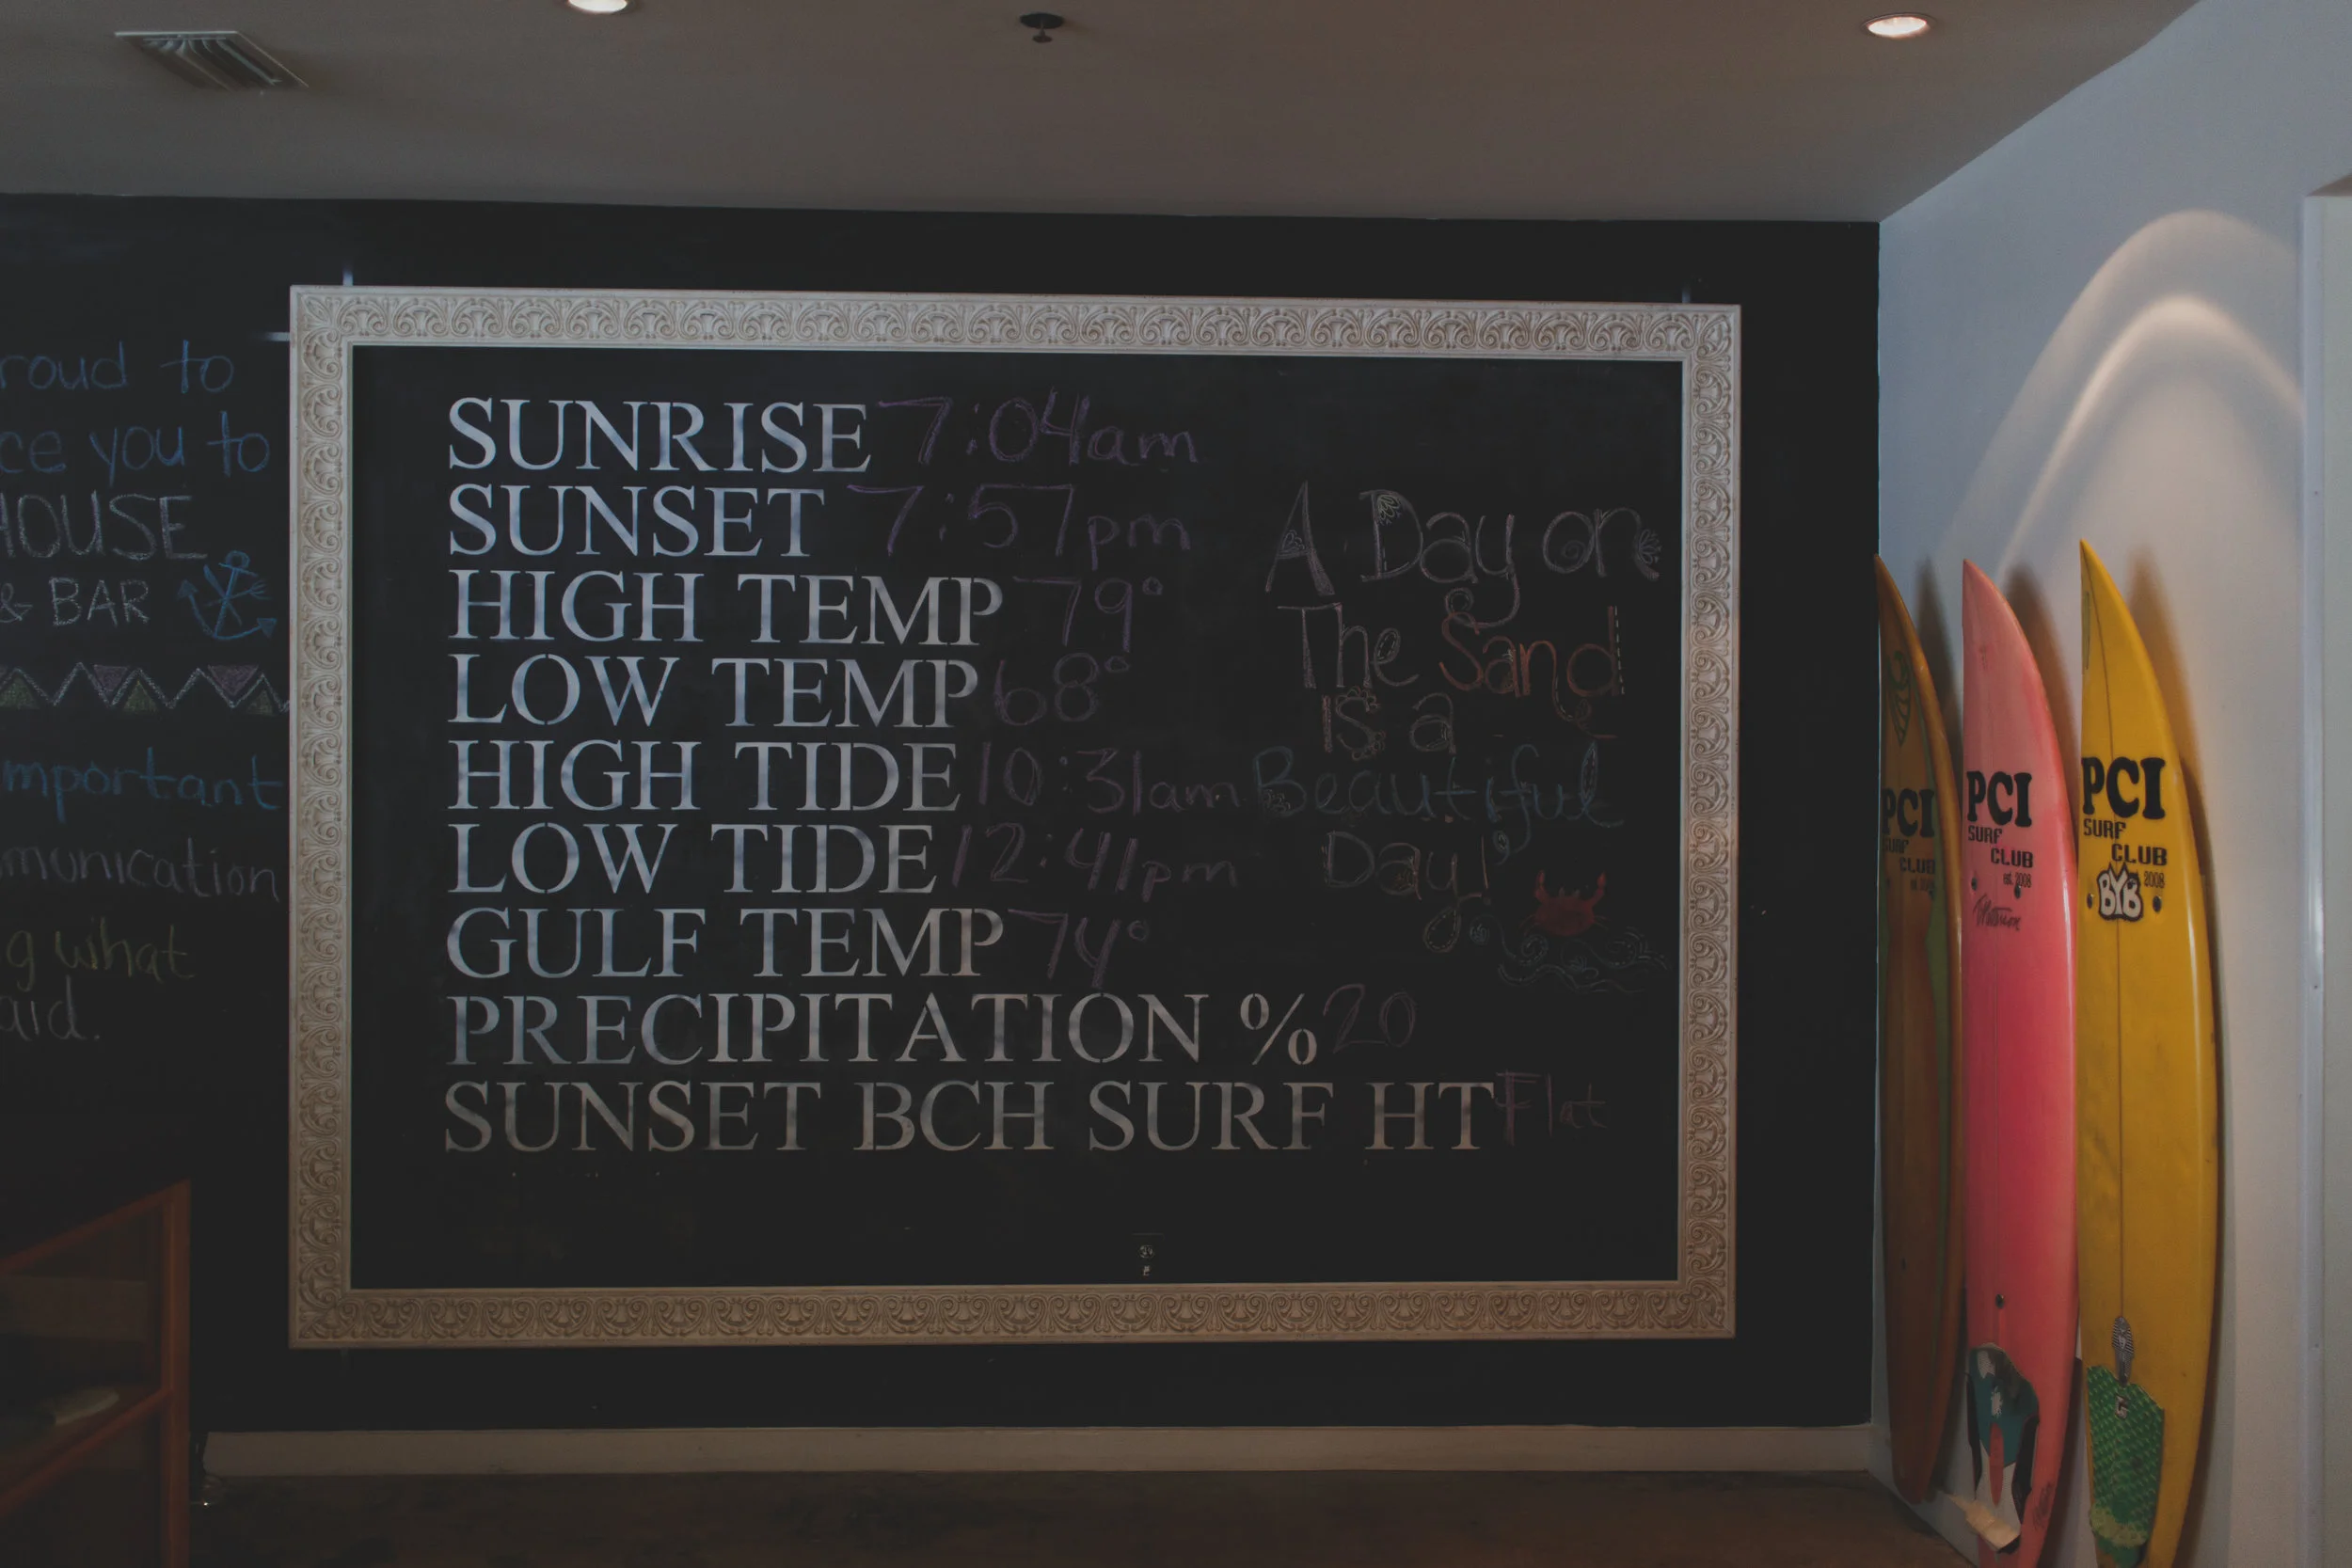 roud to
ce you to
HOUSE
& BAR
mportant
munication
g what
aid.
SUNRISE 7:04am
SUNSET 7:57pm
HIGH TEMP 79°
LOW TEMP 68°
HIGH TIDE 10:31am
LOW TIDE 12:41pm
GULF TEMP 74°
PRECIPITATION % 20
SUNSET BCH SURF HT Flat
A Day on
The Sand
is a
Beautiful
Day!
PCI
SURF
CLUB
PCI
SURF
CLUB
est. 2008
PCI
SURF
CLUB
2008
BYB